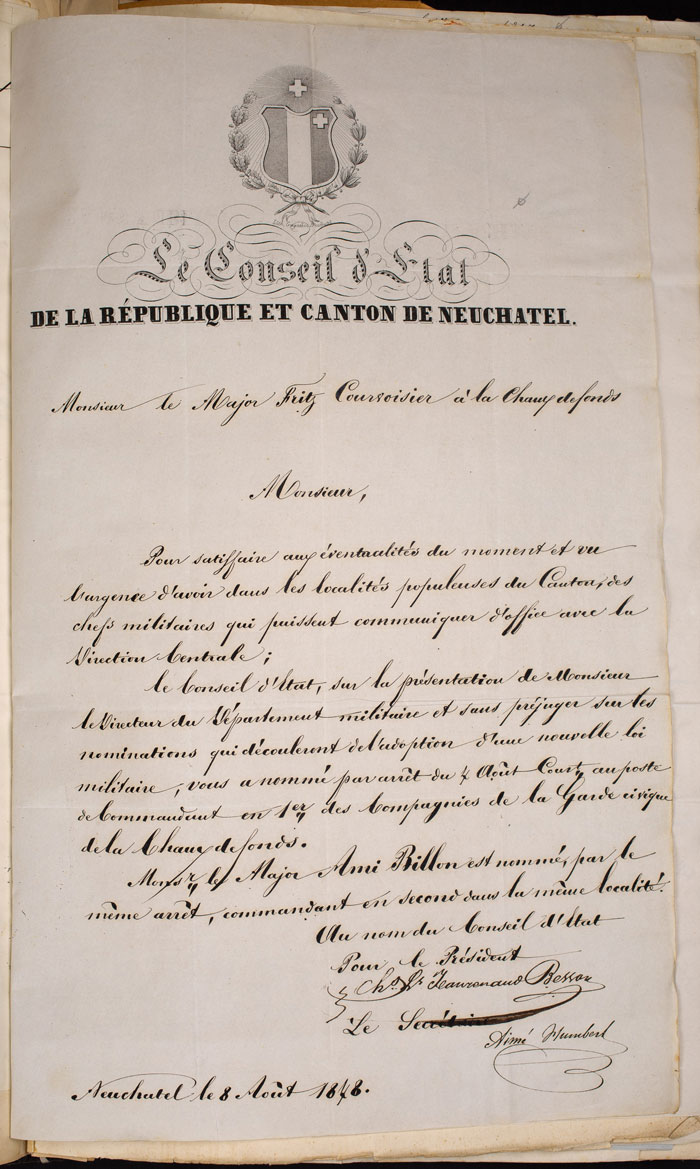 Le Conseil d'Etat
DE LA RÉPUBLIQUE ET CANTON DE NEUCHATEL.
Monsieur le Major Fritz Courvoisier à la Chaux de fonds
Monsieur,
Pour satisfaire aux éventualités du moment et vu
l'urgence d'avoir dans les localités populeuses du Canton, des
chefs militaires qui puissent communiquer d'office avec la
Direction Centrale;
le Conseil d'Etat, sur la présentation de Monsieur
le Directeur du Département militaire et sans préjuger sur les
nominations qui découleront de l'adoption d'une nouvelle loi
militaire, vous a nommé par arrêt du 4 Août Court au poste
de Commandant en 1er des Compagnies de la Garde civique
de la Chaux de fonds.
Monsr le Major Ami Billon est nommé, par le
même arrêt, commandant en second dans la même localité.
Au nom du Conseil d'Etat
Pour le Président
Chs Ls Jeanrenaud Besson
Le Secrétaire
Aimé Humbert
Neuchatel le 8 Août 1848.